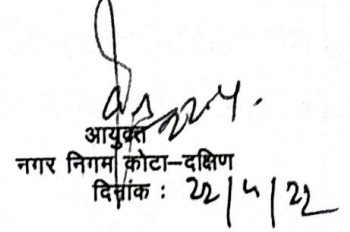 22.4.
आयुक्त
नगर निगम कोटा-दक्षिण
दिनांक : 22/4/22